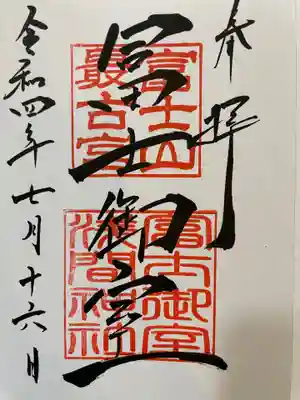 奉拝
冨士御室
富士山
最古宮
富士御室
浅間神社
令和四年七月十六日